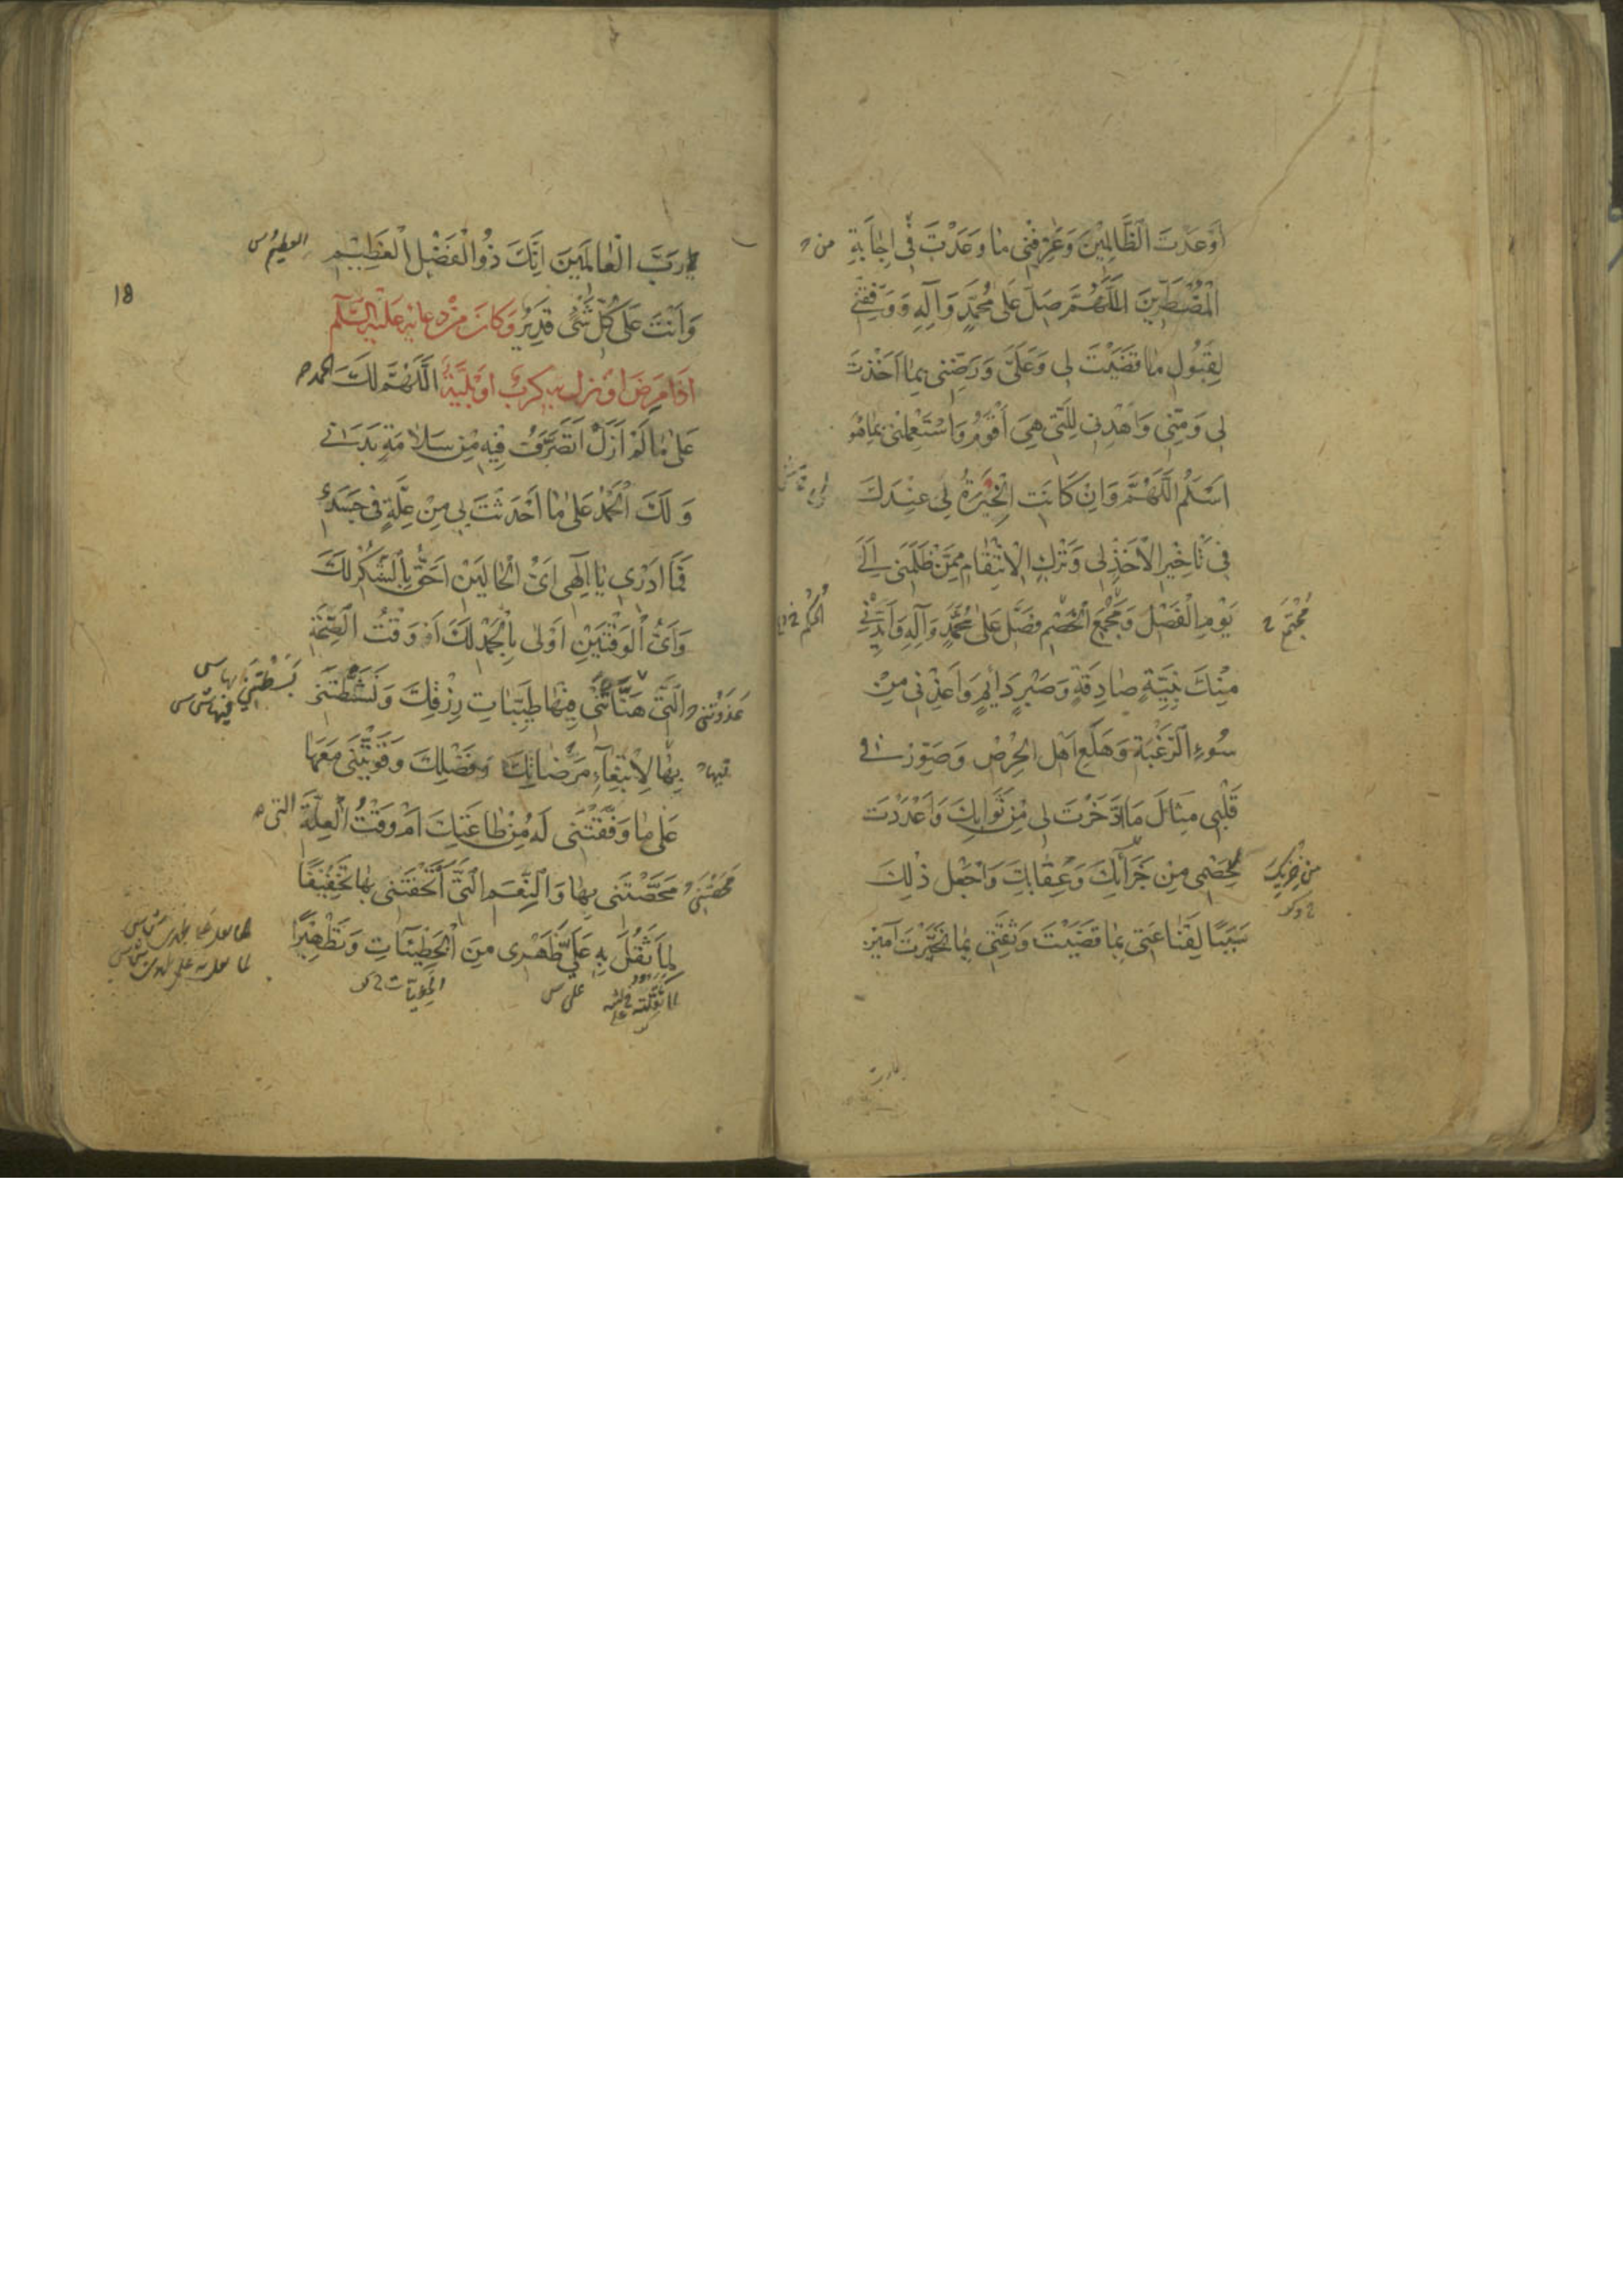 أَوْعَدْتَ الظَّالِمِيْنَ وَعَرِّفْنِى مَا وَعَدْتَ فِى اِجَابَةِ
الْمُضْطَرِّيْنَ اَللّٰهُمَّ صَلِّ عَلٰى مُحَمَّدٍ وَآلِهِ وَوَفِّقْنِى
لِقَبُولِ مَا قَضَيْتَ لِى وَعَلَىَّ وَرَضِّنِى بِمَا اَخَذْتَ
لِى وَمِنِّى وَاهْدِنِى لِلَّتِى هِىَ اَقْوَمُ وَاسْتَعْمِلْنِى بِمَا هُوَ
اَسْلَمُ اَللّٰهُمَّ وَاِنْ كَانَتِ الْخِيَرَةُ لِى عِنْدَكَ
فِى تَأخِيْرِ الْاَخْذِ لِى وَتَرْكِ الْاِنْتِقَامِ مِمَّنْ ظَلَمَنِى اِلٰى
يَوْمِ الْفَصْلِ وَمَجْمَعِ الْخَصْمِ فَصَلِّ عَلٰى مُحَمَّدٍ وَآلِهِ وَاَيِّدْنِى
مِنْكَ بِنِيَّةٍ صَادِقَةٍ وَصَبْرٍ دَائِمٍ وَاَعِذْنِى مِنْ
سُوءِ الرَّغْبَةِ وَهَلَعِ اَهْلِ الْحِرْصِ وَصَوِّرْ فِى
قَلْبِى مِثَالَ مَا ادَّخَرْتَ لِى مِنْ ثَوَابِكَ وَاَعْدَدْتَ
لِخَصْمِى مِنْ جَزَائِكَ وَعِقَابِكَ وَاجْعَلْ ذٰلِكَ
سَبَبًا لِقَنَاعَتِى بِمَا قَضَيْتَ وَثِقَتِى بِمَا تَخَيَّرْتَ آمِيْنَ
من
18
رَبَّ الْعَالَمِيْنَ اِنَّكَ ذُو الْفَضْلِ الْعَظِيْمِ
وَاَنْتَ عَلٰى كُلِّ شَىْءٍ قَدِيْرٌ وَكَانَ مِنْ دُعَائِهِ عَلَيْهِ السَّلٰم
اِذَا مَرِضَ اَوْ نَزَلَ بِهِ كَرْبٌ اَوْ بَلِيَّةٌ اَللّٰهُمَّ لَكَ الحمد
عَلٰى مَا لَمْ اَزَلْ اَتَصَرَّفُ فِيْهِ مِنْ سَلَامَةِ بَدَنِى
وَلَكَ الْحَمْدُ عَلٰى مَا اَحْدَثْتَ بِى مِنْ عِلَّةٍ فِى جَسَدِى
فَمَا اَدْرِى يَا اِلٰهِى اَىُّ الْحَالَيْنِ اَحَقُّ بِالشُّكْرِ لَكَ
وَاَىُّ الْوَقْتَيْنِ اَوْلٰى بِالْحَمْدِ لَكَ اَوَقْتُ الصِّحَّةِ
الَّتِى هَنَّأْتَنِى فِيْهَا طَيِّبَاتِ رِزْقِكَ وَنَشَّطْتَنِى
بِهَا لِابْتِغَاءِ مَرْضَاتِكَ وَفَضْلِكَ وَقَوَّيْتَنِى مَعَهَا
عَلٰى مَا وَفَّقْتَنِى لَهُ مِنْ طَاعَتِكَ اَمْ وَقْتُ الْعِلَّةِ التى
مَحَّصْتَنِى بِهَا وَالنِّعَمِ الَّتِى اَتْحَفْتَنِى بِهَا تَخْفِيْفًا
لِمَا ثَقُلَ بِهِ عَلَىَّ ظَهْرِى مِنَ الْخَطِيْئَاتِ وَتَطْهِيْرًا
العظيم
فيها
على